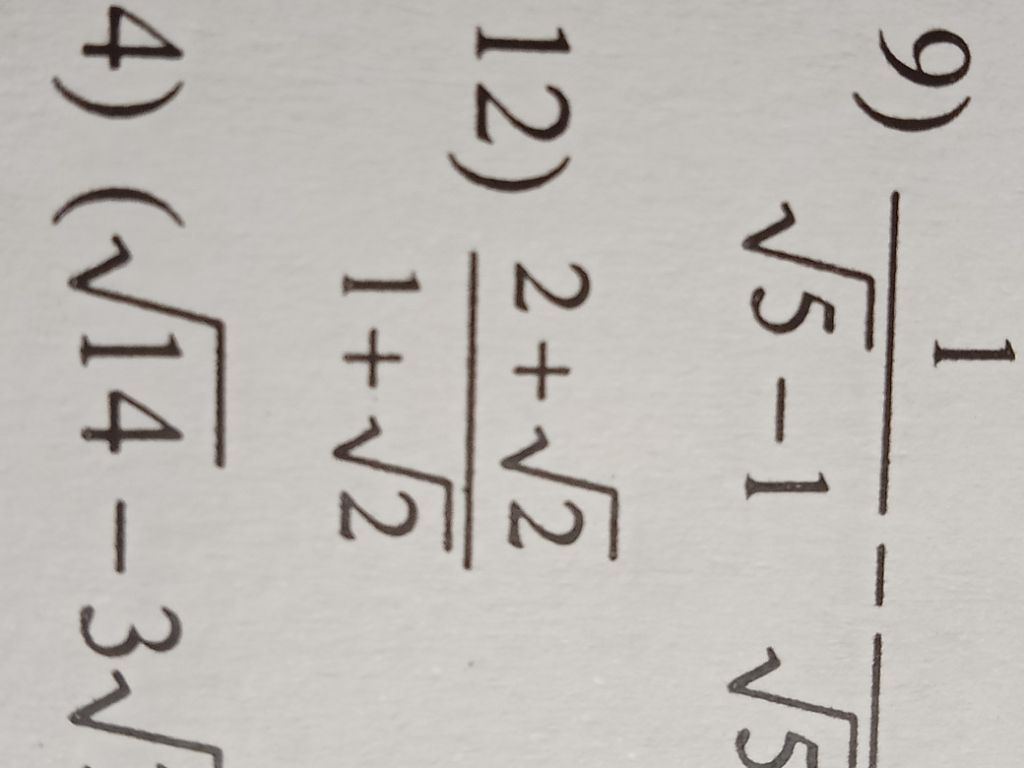 9) 1/(√5 - 1) - /√5
12) (2 + √2)/(1 + √2)
4) (√14 - 3√